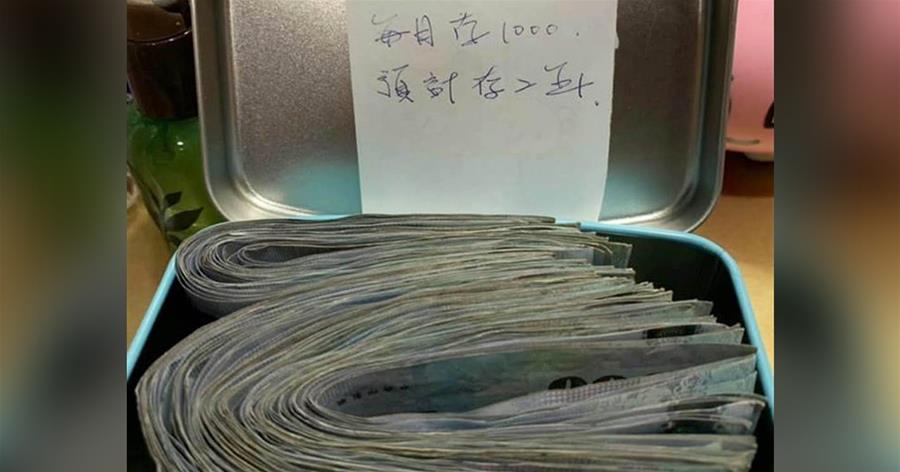 每月存1000.
預計存二年.